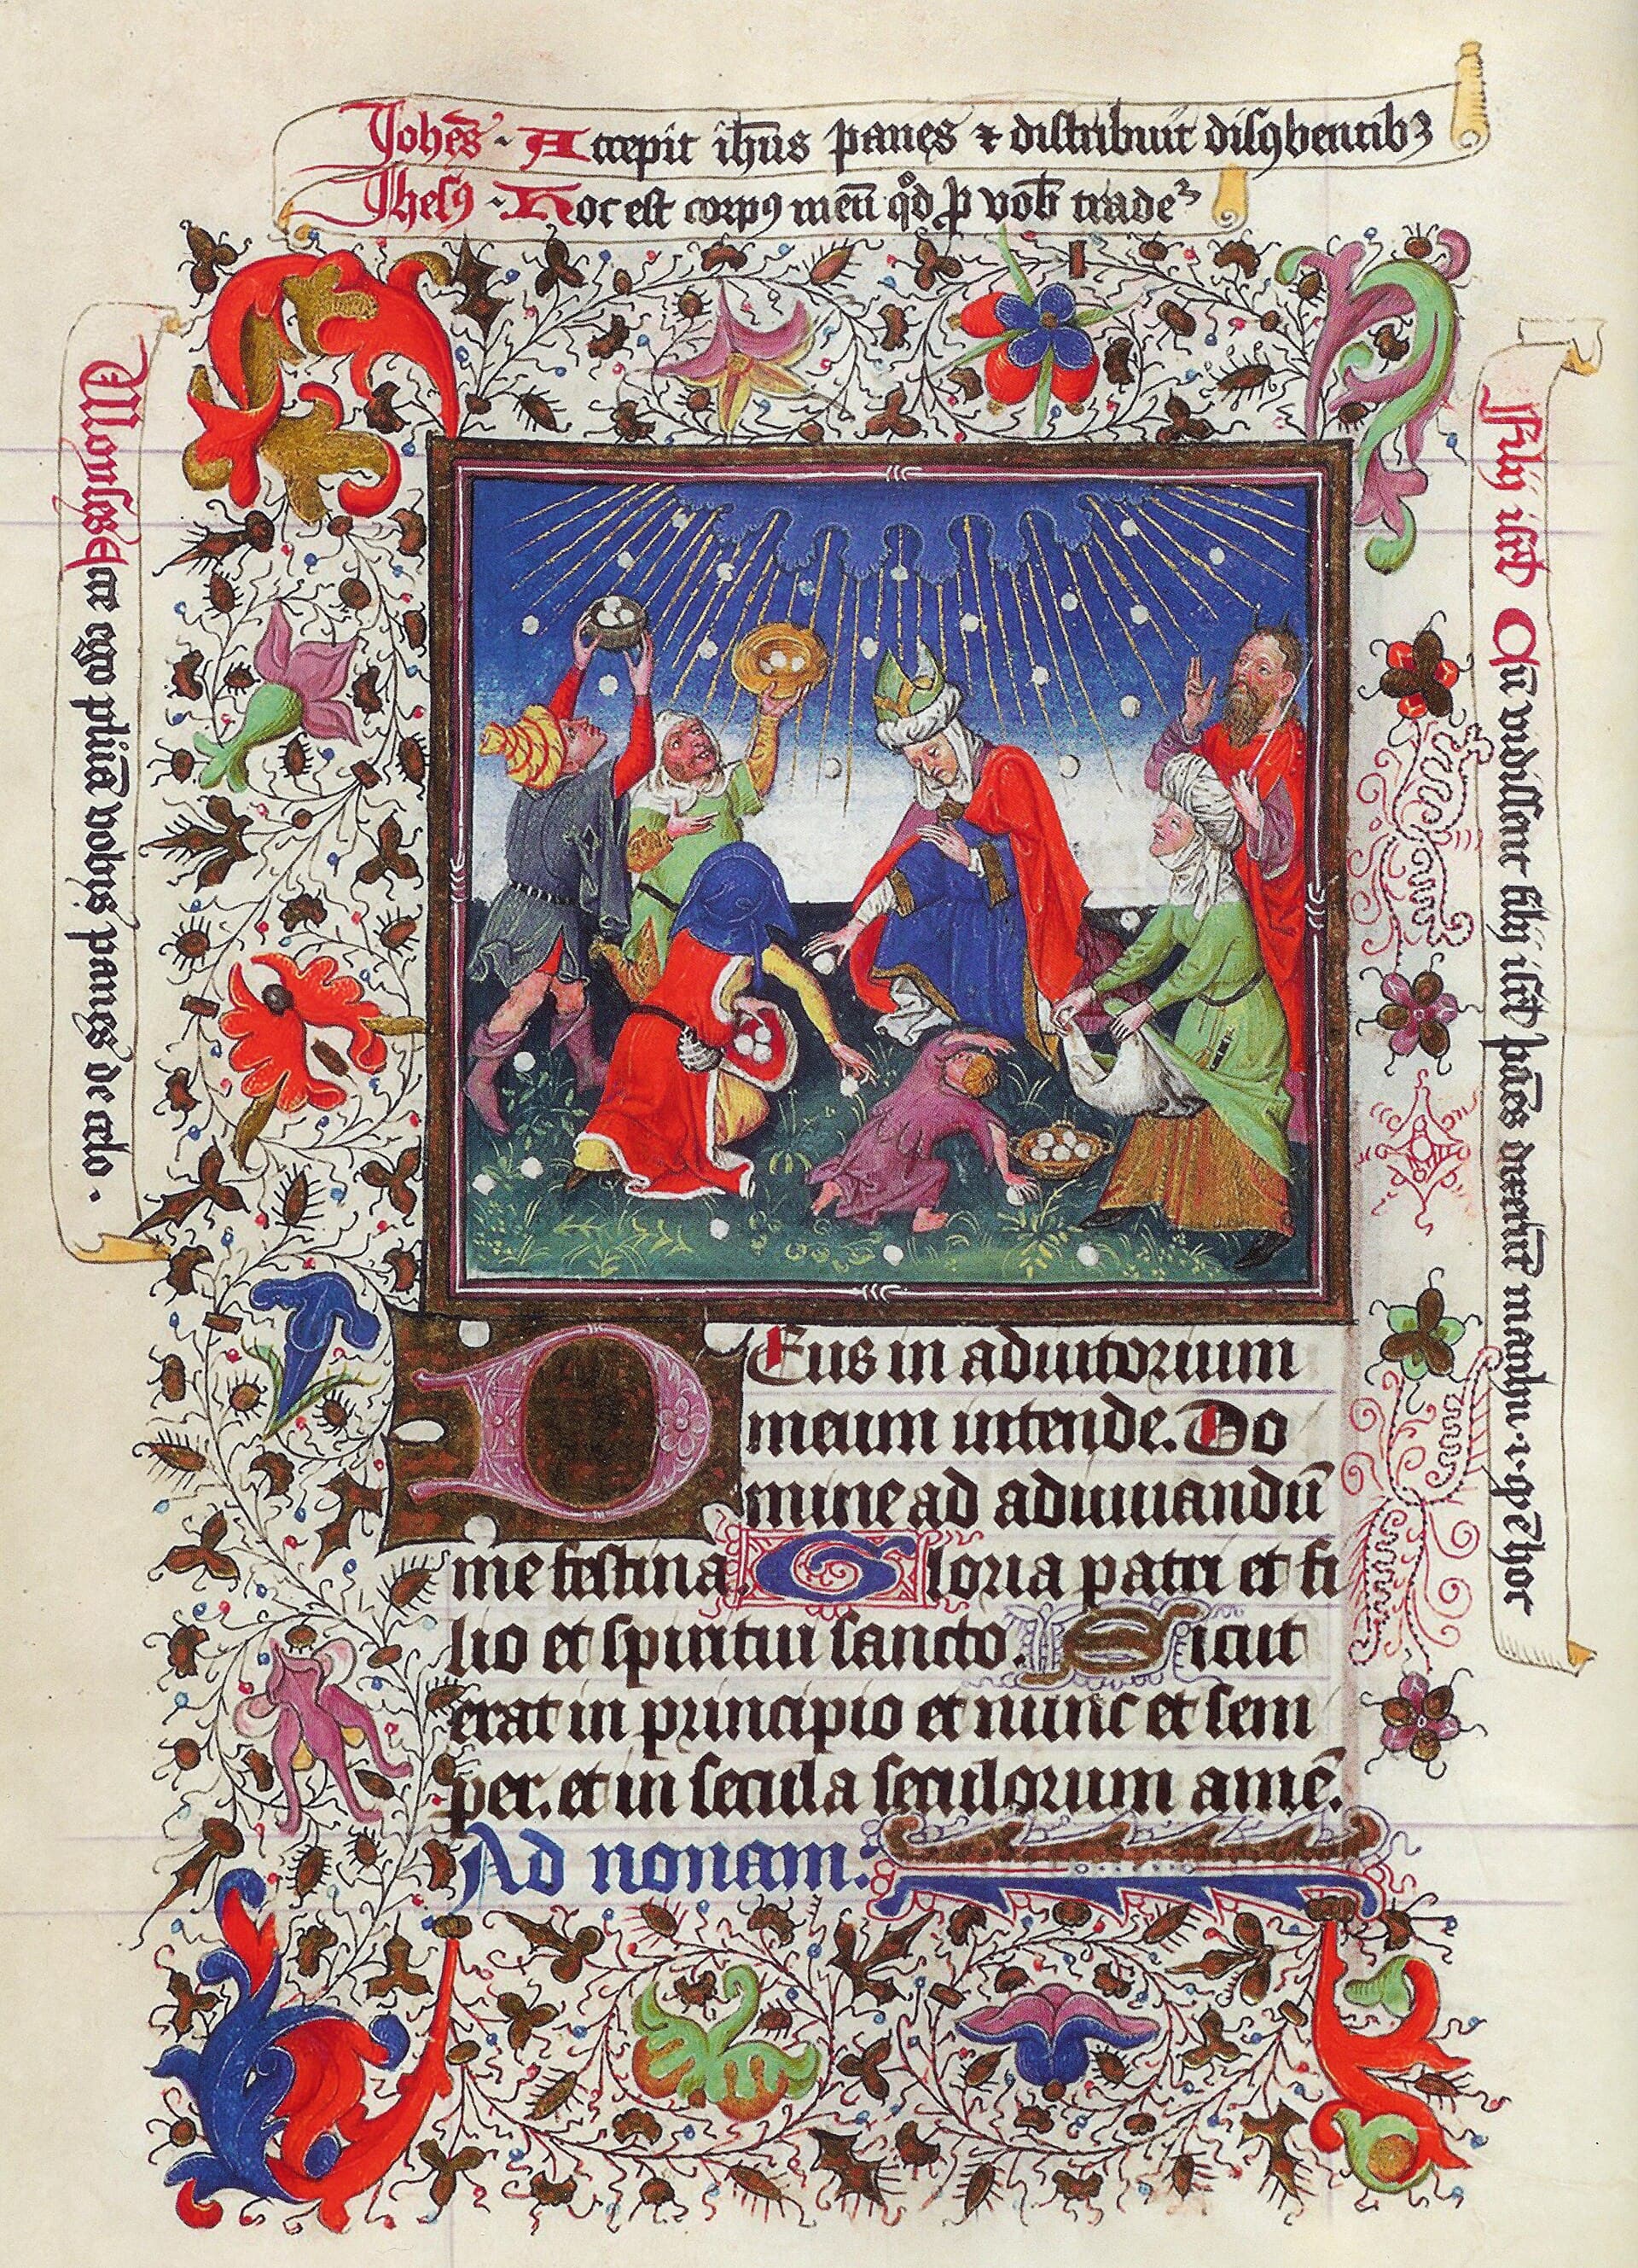 Johēs · Accepit ih̄us panes ⁊ distribuit disc̄ūbentibꝫ
Jhesꝰ · Hoc est corpꝰ meū qͦd ꝓ vob̄ trade
Moyses Ecce ego pluā vobis panes de celo ·
filij isrl̄ Cū vidissent filij isrl̄ dixerūt manhu · i · qd ē hoc
Deus in adiutorium
meum intende. Do
mine ad adiuuandū
me festina. Gloria patri et fi
lio et spiritui sancto. Sicut
erat in principio et nunc et sem
per. et in secula seculorum amē.
Ad nonam.